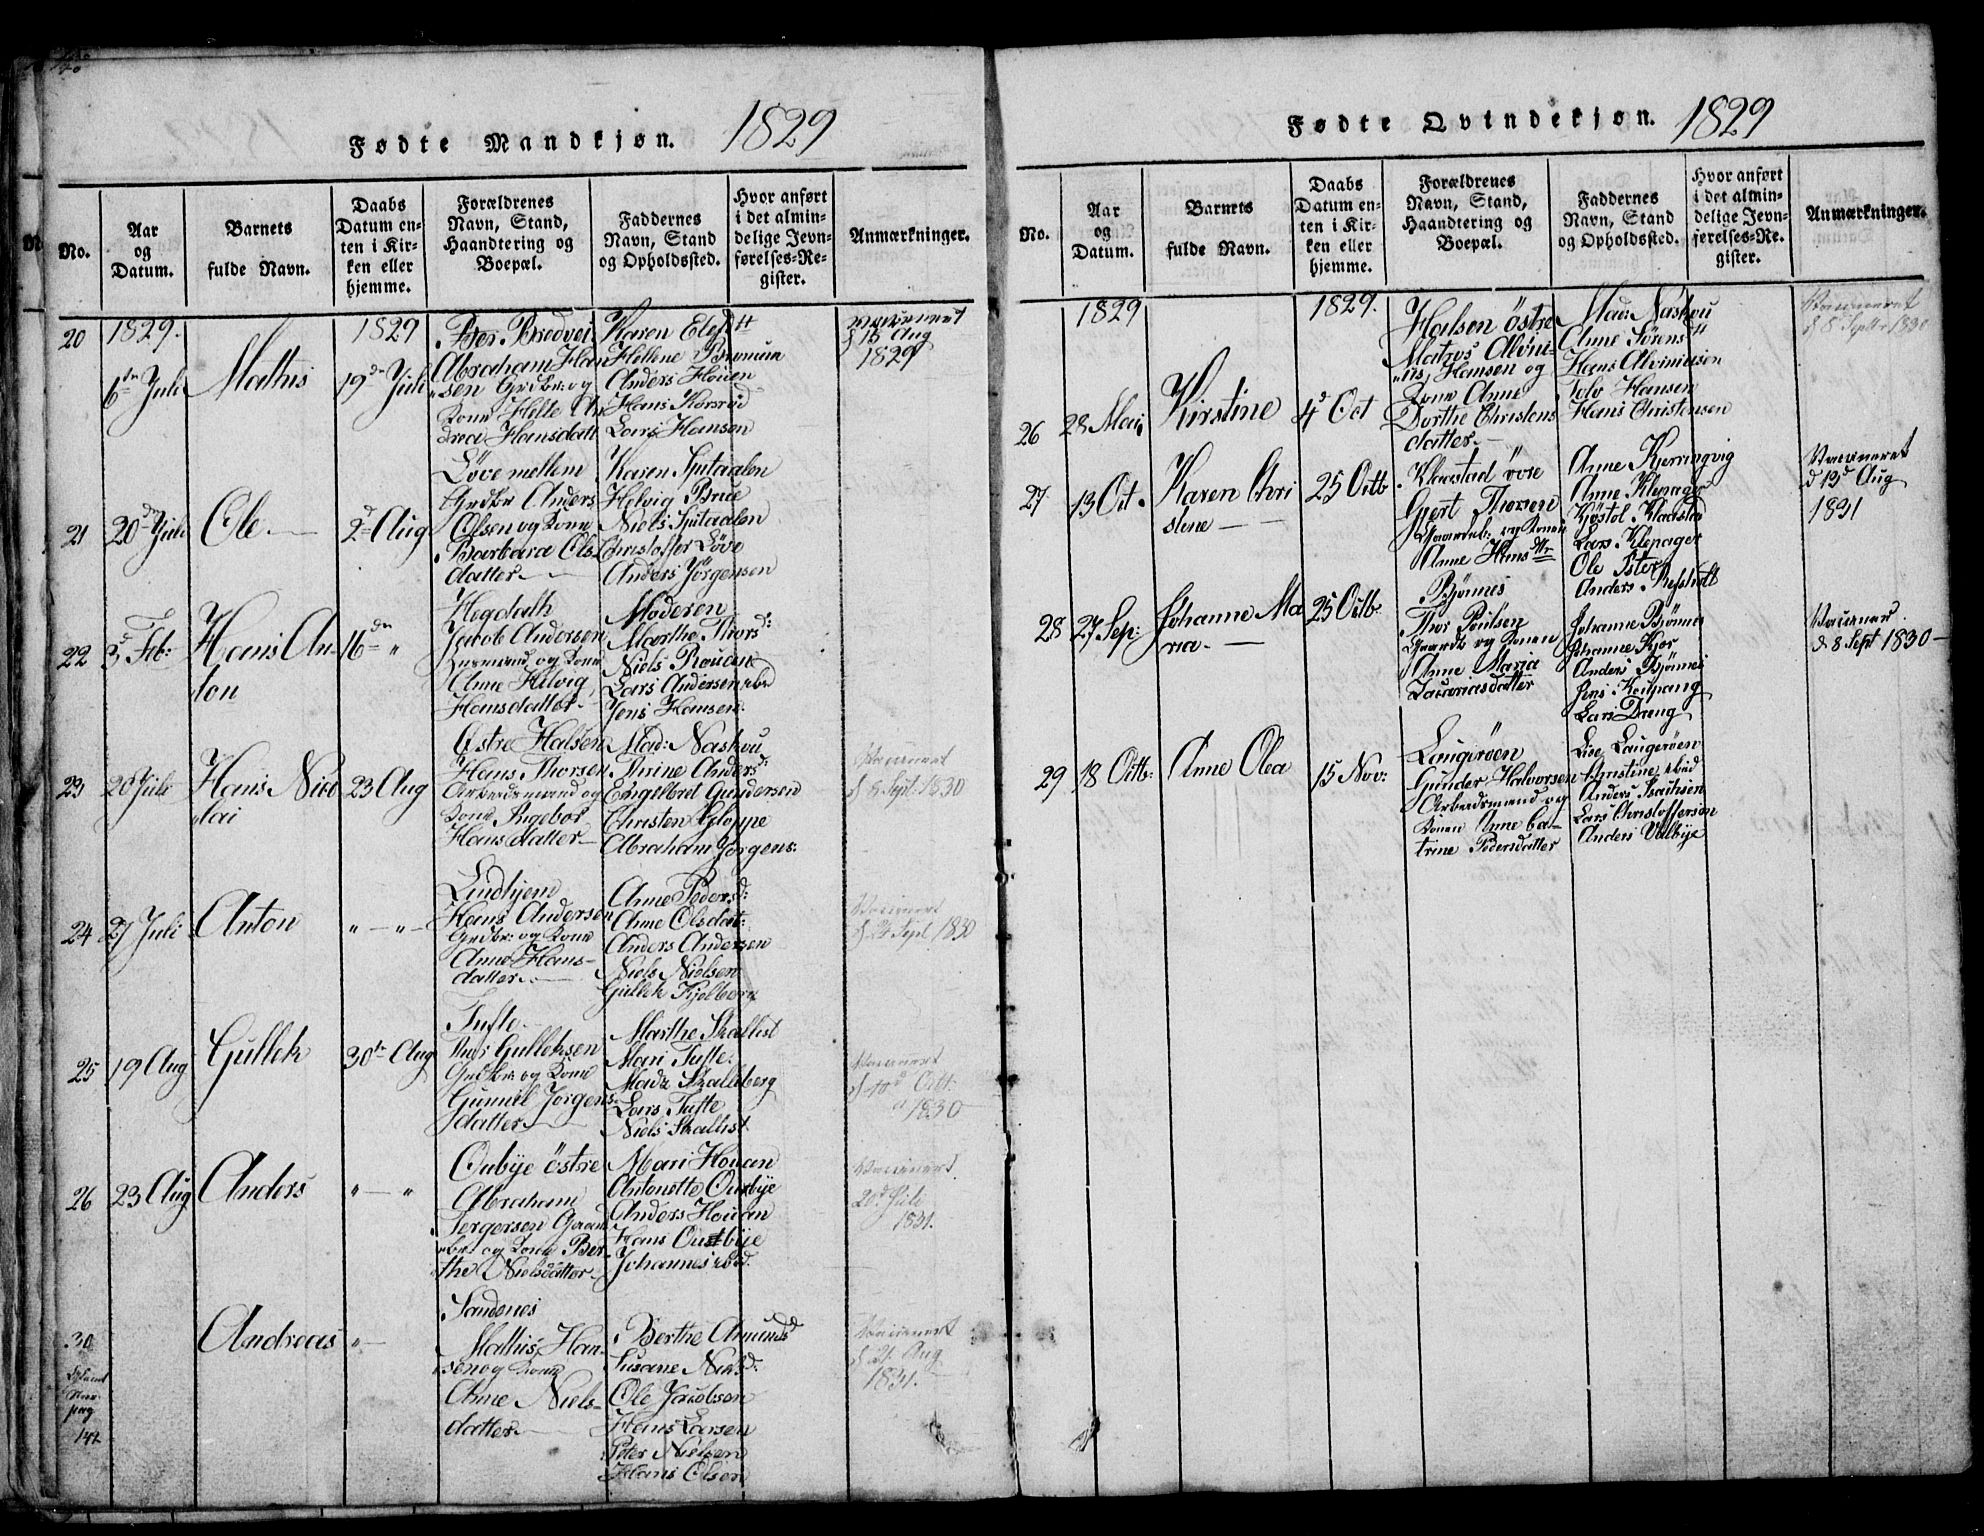 Fødte Mandkjøn. 1829
No.
Aar
og
Datum.
Barnets
fulde Navn.
Daabs
Datum en-
ten i Kir-
ken eller
hjemme.
Forældrenes
Navn, Stand,
Haandtering og
Boepæl.
Faddernes
Navn, Stand
og Opholdssted.
Hvor anført
i det almin-
delige Jevn-
førelses-Re-
gister.
Anmærkninger.
20
1829.
6te Juli
Mathis
1829
19de Juli
Bredvei
Abraham Han
sen Grdbr: og
Kone Helte An
drea Hansdatt
Karen
Hellene Brunum
Anders Houen
Hans Korsrød
Lars Hansen
15 Aug
1829
21
20de Juli
Ole
2d Aug
Løve mellem
Grdbr Anders
Olsen og Kone
Barbara Ols
datter
Karen Spitaalen
Helvig Brue
Niels Spitaalen
Christoffer Løve
Anders Jörgensen
22
3d Feb:
Hans An-
ton
16de "
Hegdath
Jacob Andersen
Husmand og Kone
Anne Helvig
Hansdatter
Moderen
Marthe Thorsd:
Niels Rouen
Lars Andersen ibd
Jens Hansen
23
20 Juli
Hans Nico
lai
23 Aug
Østre Halsen
Hans Thorsen
Arbeidsmand og
Kone Ingebor
Hansdatter
Mad: Naskou
Thrine Andersd:
Engelbret Gundersen
Christen Gloppe
Abraham Jørgens:
Vaccineret
d 8 Sept. 1830
24
27 Juli
Anton
" — " —
Lindhjem
Hans Andersen
Grdbr: og Kone
Anne Hans-
datter
Anne Pedersd:
Anne Olsdat:
Anders Andersen
Niels Nielsen
Gullek Kjelberg
Vaccineret
d 24 Sept 1830
25
19 Aug
Gullek
30te Aug
Tufte
Gulleksen
Grdbr og Kone
Gunnil Jørgens-
datter
Marthe Skallist
Mari Tufte
Madz Skallberg
Lars Tufte
Niels Skallist
Vaccineret
d 10d Octb:
1830
26
23 Aug
Anders
" — "
Oubye östre
Abraham
Jørgersen Gaard
br: og Kone Ber-
the Nielsdatter
Mari Houen
Antonette Oubye
Anders Houen
Hans Oustbye
Johannes ibd.
Vaccineret
20d Juli
1831.
30
142
Andreas
" —
Sandenes
Mathis Han-
sen og Kone
Anne Niels-
datter
Berthe Amundsd
Susane Nielsd:
Ole Jacobsen
Hans Larsen
Peter Nielsen
Hans Olsen
Vaccineret
d 21 Aug
1831.
Fødte Qvindekjøn. 1829
No.
Aar
og
Datum.
Barnets
fulde Navn.
Daabs
Datum en-
ten i Kir-
ken eller
hjemme.
Forældrenes
Navn, Stand,
Haandtering og
Boepæl.
Faddernes
Navn, Stand
og Opholdssted.
Hvor anført
i det almin-
delige Jevn-
førelses-Re-
gister.
Anmærkninger.
26
1829
28 Mai
Kirstine
1829.
4d Oct
Halsen östre
Matros Alvini-
us, Hansen og
Kone Anne
Dorthe Christens
datter
Mad: Naskou
Anne Sørens
Hans Alviniusen
Tolv Hansen
Hans Christensen
Vaccineret
d 8 Septbr 1830
27
13 Oct.
Karen Chri
stine
25 Octb
Klaastad øvre
Gjert Thorsen
Gaardb: og Konen
Anne Hansdtr
Anne Kjerringvig
Anne Klepager
Kjøstol Klaastad
Lars Klepager
Ole Ister
Anders Resholt
Vaccineret
d 13d Aug
1831
28
27 Sep:
Johanne Ma
ria
25 Octb:
Bjønnes
Thor Poulsen
Gaardb og Konen
Anne Maria
Zacariasdatter
Johanne Bjønnes
Johanne Kjær
Anders Bjønnes
Jens Kaupang
Lars Dreng
Vaccineret
d 8 Sept 1830
29
18 Octb:
Anne Olea
15 Nov:
Laugerøen
Gunder Halvorsen
Arbeidsmand og
Konen Anne Ca-
trine Pedersdatter
Lise Laugerøen
Christine ibid
Anders Isachsen
Lars Christoffersen
Anders Valbye